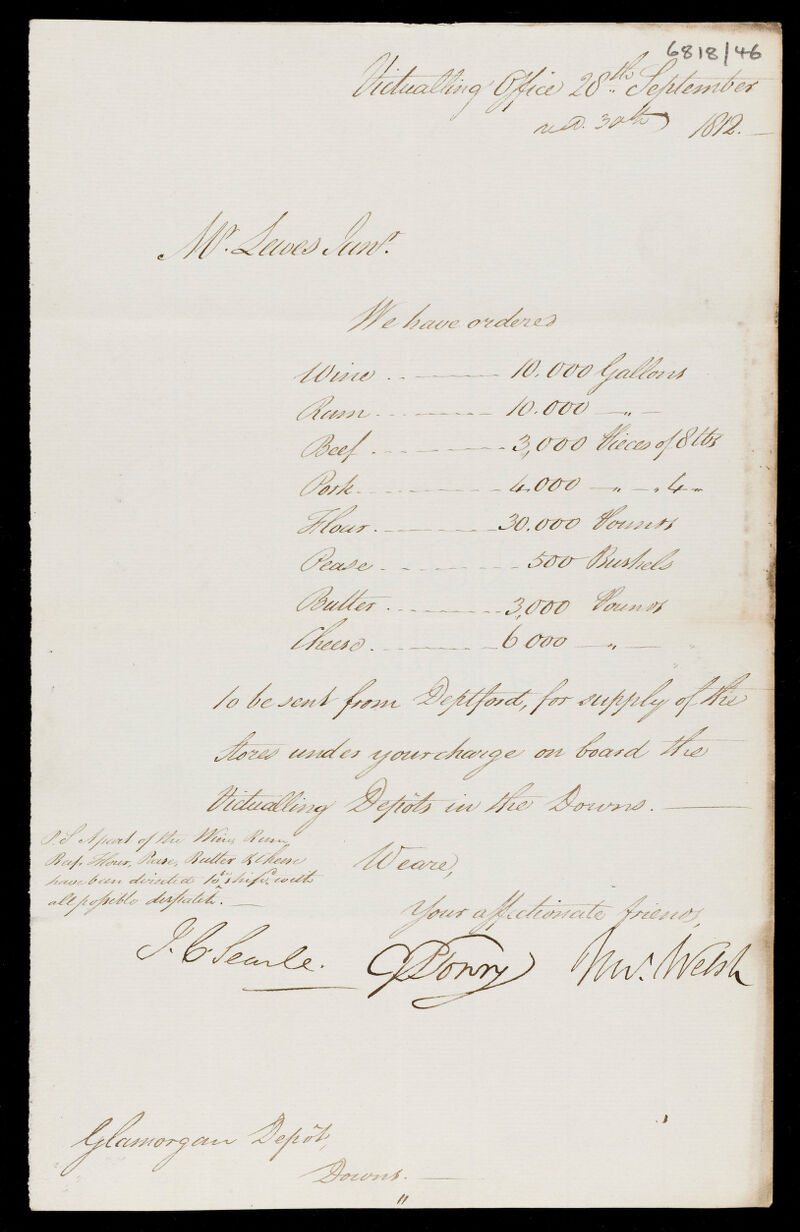 6818/46
Victualling Office 28th September
recd. 30th 1812.
Mr. Lewes Junr.
We have ordered
Wine 10.000 Gallons
Rum 10.000 "
Beef 3,000 Pieces of 8 lbs
Pork 4.000 " " 4 "
Flour 30.000 Pounds
Pease 500 Bushels
Butter 3,000 Pounds
Cheese 6000 "
to be sent from Deptford, for supply of the
Stores under your charge on board the
Victualling Depôts in the Downs.
P.S. A part of the Wine, Rum,
Beef, Flour, Pease, Butter & Cheese
have been directed to be ship'd with
all possible dispatch.
We are,
Your affectionate friends,
J. C. Searle.
Towry
Welsh
Glamorgan Depôt,
Downs.
"